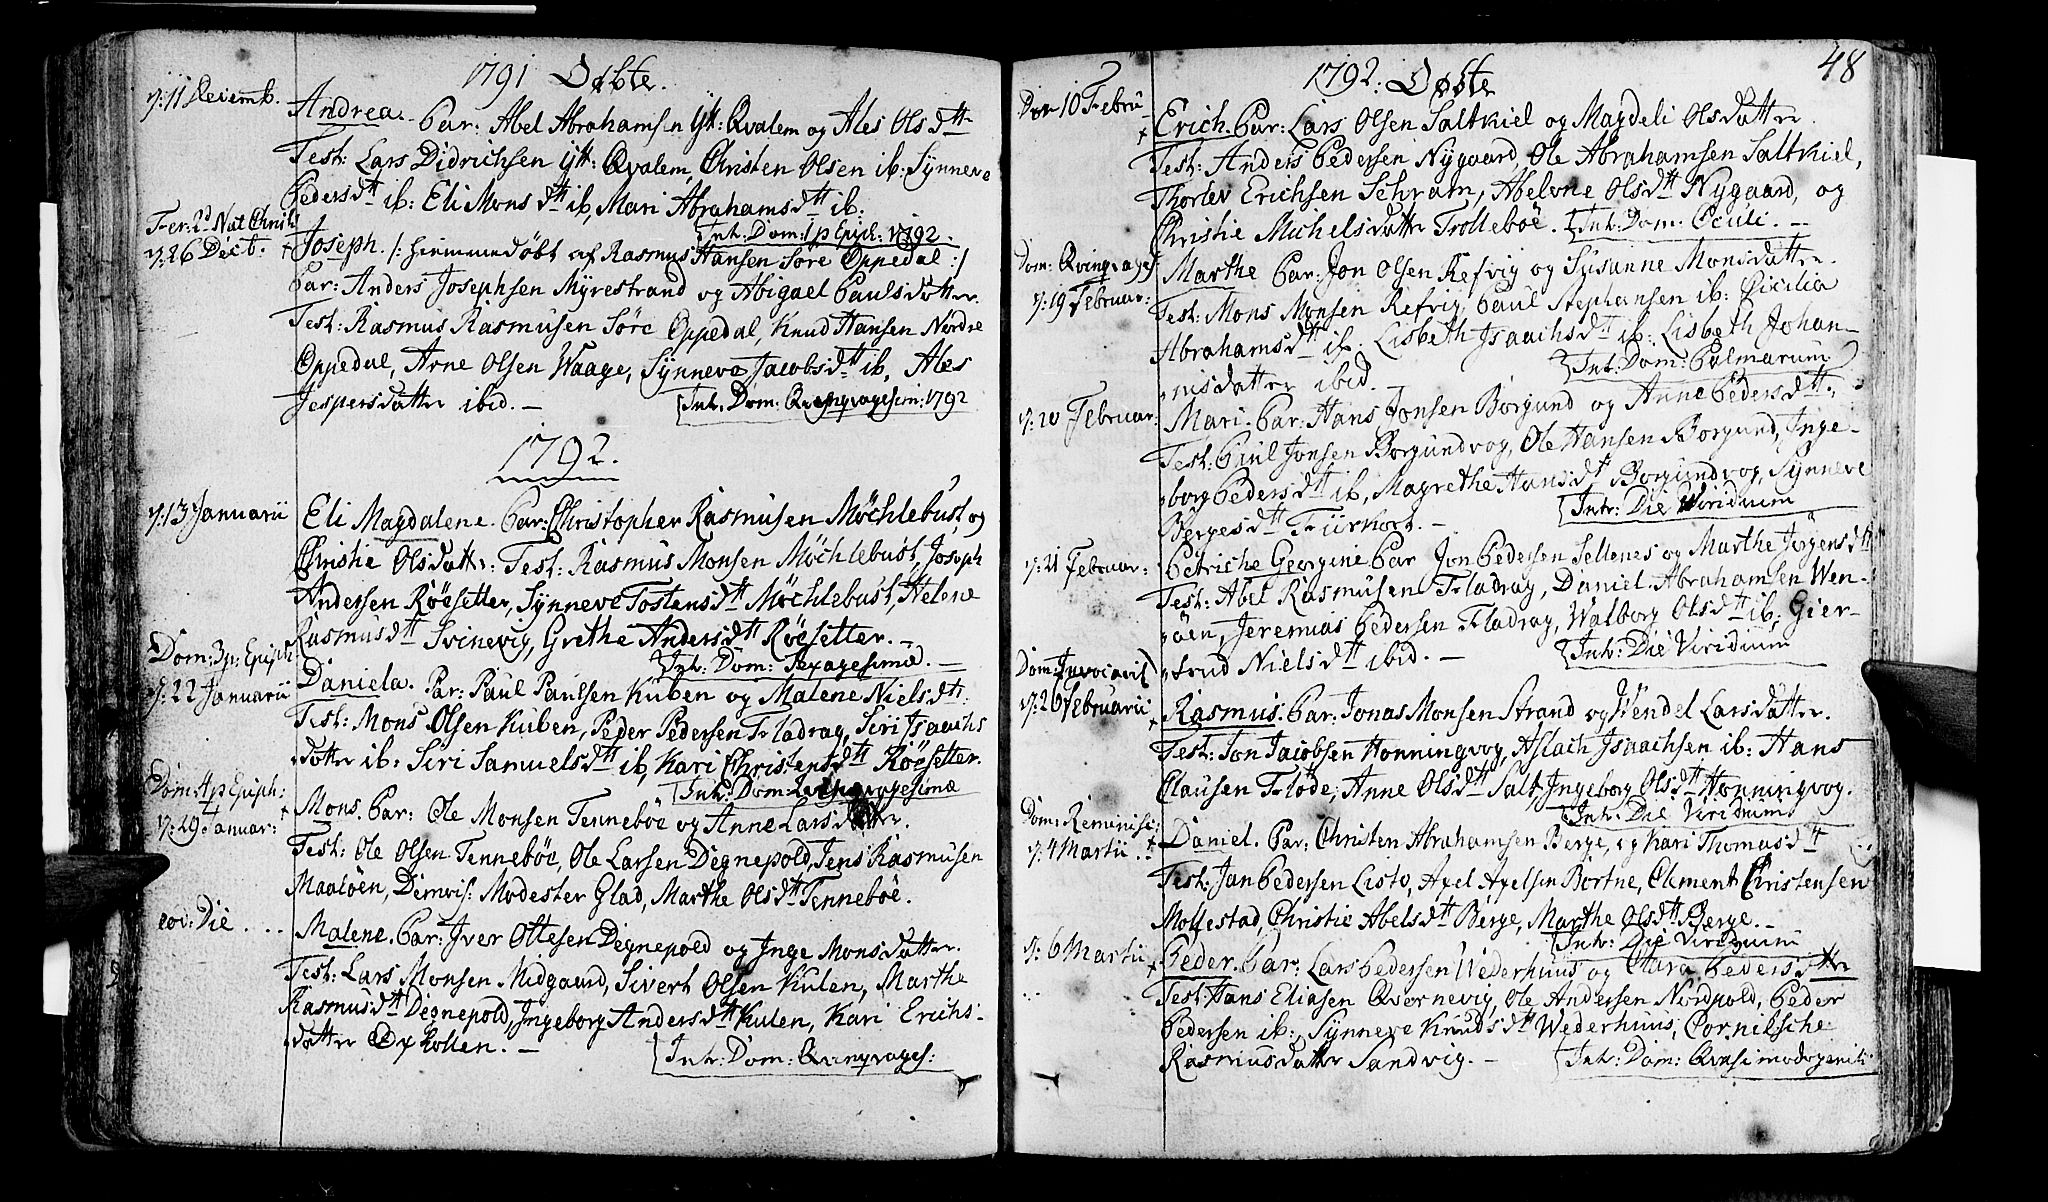 1791 Døbte.
d: 11 Decemb. Andrea. Par: Abel Abrahamsen ytt: Qvalem og Ales Olsdttr
Test: Lars Didrichsen ytt: Qvalem, Christen Olsen ib: Synneve
Pedersdtt ib: Eli Monsdtt ib, Mari Abrahamsdtt ib:
Intr: Dom: 1 p Epiph: 1792.
Fer: 2d Nat Christi
d: 26 Decb: Joseph. /: hiemmedøbt af Rasmus Hansen Søre Oppedal :/
Par: Anders Josephsen Myrestrand og Abigael Paulsdatter.
Test: Rasmus Rasmusen Søre Oppedal, Knud Hansen Nordre
Oppedal, Arne Olsen Waage, Synneve Jacobsdtt ib, Ales
Jespersdatter ibid. — Intr: Dom: Qvinqvagesim: 1792
1792.
d: 13 Januarii Eli Magdalene. Par: Christopher Rasmusen Möchlebust og
Christie Olsdattr: Test: Rasmus Monsen Möchlebust, Joseph
Andersen Röesetter, Synneve Tostensdtt Möchlebust, Helene
Rasmusdtt Svinevig, Grethe Andersdtt Röesetter. —
Intr: Dom: Sexagesimæ. —
Dom: 3 p: Epiph:
d: 22 Januarii Daniela. Par: Paul Paulsen Kuben og Malene Nielsdtt.
Test: Mons Olsen Kuben, Peder Pedersen Fladrag, Siri Isaachs
datter ib: Siri Samuelsdtt ib, Kari Christensdtt Röesetter.
Intr: Dom: Qvinqvagesimæ
Dom: 4 p Epiph:
d: 29 Januar: Mons. Par: Ole Monsen Tenneböe og Anne Larsdatter.
Test: Ole Olsen Tenneböe, Ole Larsen Degnepold, Jens Rasmusen
Maalöen, Dimis: Modester Glad, Marthe Olsdtt Tenneböe.
eod: Die .... Malene. Par: Iver Ottesen Degnepold og Inge Monsdatter.
Test: Lars Monsen Midgaard, Sivert Olsen Kulen, Marthe
Rasmusdtt Degnepold, Ingeborg Andersdtt Kulen, Kari Erichs-
datter Husevaag. —
Intr: Dom: Qvinqvages:
48
1792: Døbte
10 Febru Erich. Par: Lars Olsen Saltkiel og Magdeli Olsdatter.
Test: Anders Pedersen Nygaard, Ole Abrahamsen Saltkiel,
Thorlev Erichsen Schram, Abelone Olsdtt Nygaard, og
Christie Michelsdatter Trolleböe. Intr: Dom: Oculi. —
Dom: Qvinqvages:
d: 19 Februar: Marthe Par: Jon Olsen Refvig og Susanne Monsdatter.
Test: Mons Monsen Refvig, Paul Stephansen ib: Cicilia
Abrahamsdtt ib: Lisbeth Isaachsdtt ib: Lisbeth Johan-
nisdatter ibid. — Intr: Dom: Palmarum
d: 20 Februar: Mari. Par: Hans Jonsen Borgund og Anne Pedersdtt:
Test: Paul Jonsen Borgundvog, Ole Hansen Borgund, Inge-
borg Pedersdtt ib, Magrethe Hansdtt Borgundvog, Synneve
Børgesdtt — Intr: Die Viridium
d: 21 Februar: Petriche Georgine Par Jon Pedersen Sellenes og Marthe Jörgensdtt
Test: Abel Rasmusen Fladrag, Daniel Abrahamsen Wen-
öen, Jeremias Pedersen Fladrag, Walborg Olsdtt ib, Gier-
trud Nielsdtt ibid. — Intr: Die Viridium
Dom: Invocavit
d: 26 Februarii Rasmus. Par: Jonas Monsen Strand og Wendel Larsdatter.
Test: Jon Jacobsen Honningvog, Aslach Isaachsen ib: Hans
Clausen Flöde, Anne Olsdtt Salt, Ingeborg Olsdtt Honningvog.
Intr: Die Viridium
Dom: Reminisc:
d: 4 Martii .. Daniel. Par: Christen Abrahamsen Berge, og Kari Thomasdtt
Test: Jan Pedersen Listö, Axel Axelsen Bortne, Clement Christensen
Mollestad, Christie Abelsdtt Berge, Marthe Olsdtt Berge. —
Intr: Die Viridium
d: 6 Martii Peder. Par: Lars Pedersen Wederhuus og Clara Pedersdatter
Test: Hans Eliasen Qvernevig, Ole Andersen Nordpold, Peder
Pedersen ib: Synneve Knudsdtt Wederhuus, Cornilsche
Rasmusdatter Sandvig. — Intr: Dom: Qvasimodogeniti